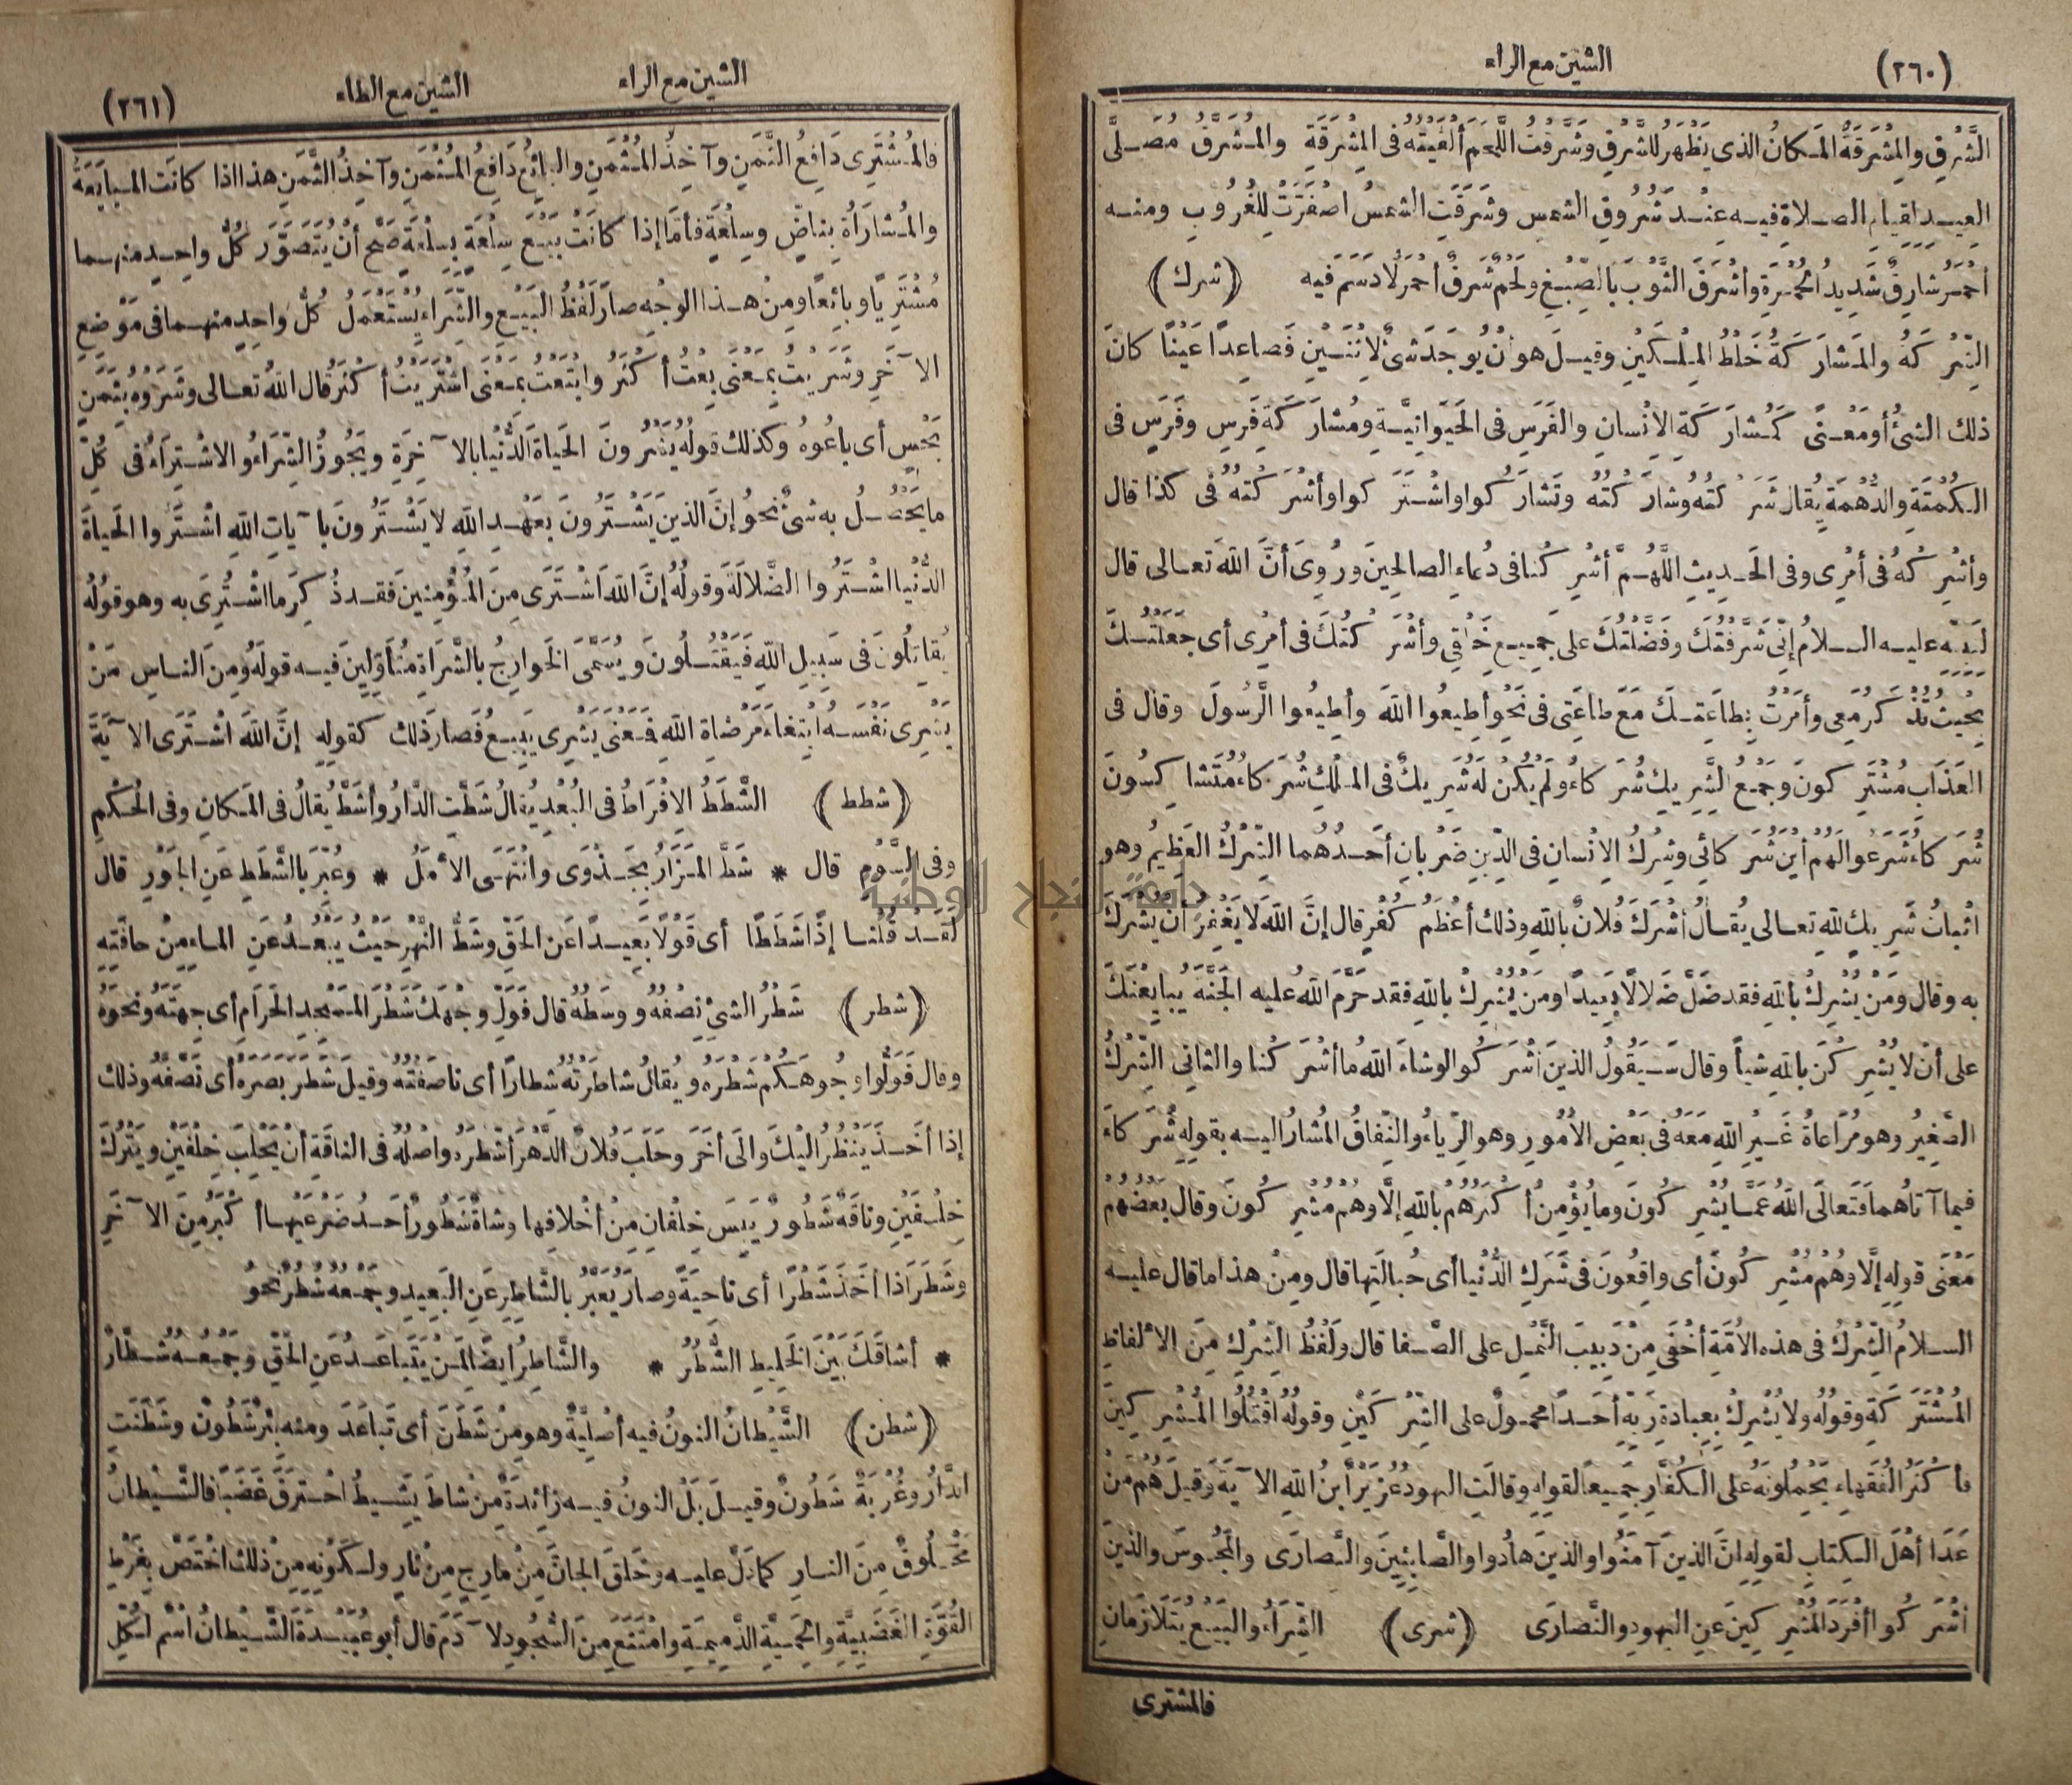 الشين مع الراء
(٢٦٠)
الشَّرْقِ والمِشْرَقَةُ المَكانُ الذى يَظْهَرُ للشَّرْقِ وشَرَّقْتُ اللَّحْمَ أَلْقَيْتُهُ فى المِشْرَقَةِ والمُشَرَّقُ مُصَلَّى
العِيدِ لِقِيامِ الصلاةِ فيه عِنْدَ شُرُوقِ الشمسِ وشَرَقَتِ الشمسُ اصْفَرَّتْ لِلْغُرُوبِ ومنه
أَحْمَرُ شارِقٌ شَدِيدُ الحُمْرَةِ وأَشْرَقَ الثَّوْبَ بالصِّبْغِ ولَحْمٌ شَرَقٌ أحْمَرُ لا دَسَمَ فيه (شرك)
الشِّرْكَةُ والمَشارَكَةُ خَلْطُ المِلْكَيْنِ وقيلَ هو أنْ يُوجَدَ شئٌ لاثْنَيْنِ فَصاعِداً عَيْناً كانَ
ذلك الشئُ أو مَعْنًى كَمُشارَكَةِ الإنْسانِ والفَرَسِ فى الحَيَوانِيَّةِ ومُشارَكَةِ فَرَسٍ وفَرَسٍ فى
الكُمْتَةِ والدُّهْمَةِ يُقالُ شَرَكْتُهُ وشارَكْتُهُ وتَشارَكُوا واشْتَرَكُوا وأَشْرَكْتُهُ فى كذا قال
وأَشْرِكْهُ فى أَمْرِى وفى الحَدِيثِ اللَّهُمَّ أَشْرِكْنا فى دُعاءِ الصالِحِينَ ورُوِىَ أنَّ اللهَ تعالى قال
لِنَبِيِّهِ عليه السلامُ إنِّى شَرَّفْتُكَ وفَضَّلْتُكَ على جَمِيعِ خَلْقِى وأَشْرَكْتُكَ فى أَمْرِى أى جَعَلْتُكَ
بِحَيْثُ تُذْكَرُ مَعِى وأَمَرْتُ بِطاعَتِكَ مَعَ طاعَتِى فى نَحْوِ أَطِيعُوا اللهَ وأَطِيعُوا الرَّسُولَ وقال فى
العَذَابِ مُشْتَرِكُونَ وجَمْعُ الشَّرِيكِ شُرَكاءُ ولَمْ يَكُنْ لَهُ شَرِيكٌ فى المُلْكِ شُرَكاءُ مُتَشاكِسُونَ
شُرَكاءُ شَرَعُوا لَهُمْ أَيْنَ شُرَكائِى وشِرْكُ الإنْسانِ فى الدِّينِ ضَرْبانِ أحَدُهُما الشِّرْكُ العَظِيمُ وهو
اثْباتُ شَرِيكٍ للهِ تعالى يُقالُ أَشْرَكَ فُلانٌ باللهِ وذلك أَعْظَمُ كُفْرٍ قال إنَّ اللهَ لا يَغْفِرُ أَنْ يُشْرَكَ
به وقال ومَنْ يُشْرِكْ باللهِ فقد ضَلَّ ضَلالاً بَعِيداً ومَنْ يُشْرِكْ باللهِ فقد حَرَّمَ اللهُ عليه الجَنَّةَ يُبايِعْنَكَ
على أنْ لا يُشْرِكْنَ باللهِ شيأً وقال سَيَقُولُ الذينَ أَشْرَكُوا لو شاءَ اللهُ ما أَشْرَكْنا والثانِى الشِّرْكُ
الصَّغِيرُ وهو مُرَاعاةُ غَيْرِ اللهِ مَعَهُ فى بَعْضِ الأُمُورِ وهو الرِّياءُ والنِّفاقُ المُشارُ اليه بقوله شُرَكاءَ
فيما آتاهُما فَتَعالَى اللهُ عَمَّا يُشْرِكُونَ وما يُؤْمِنُ أَكْثَرُهُمْ باللهِ إلَّا وهُمْ مُشْرِكُونَ وقال بَعْضُهُمْ
مَعْنَى قوله إلَّا وهُمْ مُشْرِكُونَ أى واقِعُونَ فى شَرَكِ الدُّنْيا أى حُبالَتِها قال ومِنْ هذا ما قال عليه
السلامُ الشِّرْكُ فى هذه الأُمَّةِ أَخْفَى مِنْ دَبِيبِ النَّمْلِ على الصَّفا قال ولَفْظُ الشِّرْكِ مِنَ الألفاظِ
المُشْتَرَكَةِ وقولُهُ ولا يُشْرِكْ بِعِبادَةِ رَبِّهِ أحَداً محمولٌ على الشِّرْكَيْنِ وقولُهُ اقْتُلُوا المُشْرِكِينَ
فأَكْثَرُ الفُقَهاءِ يَحْمِلُونَهُ على الكُفَّارِ جَمِيعاً لقوله وقالَتِ اليهودُ عُزَيْرٌ ابنُ اللهِ الآيَةَ وقيلَ هُمْ مَنْ
عَدَا أَهْلَ الكِتابِ لقوله إنَّ الذينَ آمَنُوا والذينَ هادُوا والصَّابِئِينَ والنَّصارَى والمَجُوسَ والذينَ
أَشْرَكُوا أَفْرَدَ المُشْرِكِينَ عَنِ اليهودِ والنَّصارَى (شرى) الشِّرَاءُ والبَيْعُ يَتَلازَمانِ
فالمشترى
الشين مع الراء
الشين مع الطاء
(٢٦١)
فالمُشْتَرِى دَافِعُ الثَّمَنِ وآخِذُ المُثْمَنِ والبائِعُ دَافِعُ المُثْمَنِ وآخِذُ الثَّمَنِ هذا اذا كانَتِ المُبايَعَةُ
والمُشارَاةُ بِناضٍّ وسِلْعَةٍ فأمَّا إذا كانَتْ بَيْعَ سِلْعَةٍ بِسِلْعَةٍ صَحَّ أَنْ يُتَصَوَّرَ كُلُّ واحِدٍ منهما
مُشْتَرِياً وبائِعاً ومِنْ هذا الوجْهِ صارَ لَفْظُ البَيْعِ والشِّرَاءِ يُسْتَعْمَلُ كُلُّ واحِدٍ منهما فى مَوْضِعِ
الآخَرِ وشَرَيْتُ بِمَعْنَى بِعْتُ أَكْثَرُ وابْتَعْتُ بِمَعْنَى اشْتَرَيْتُ أَكْثَرُ قال اللهُ تعالى وشَرَوْهُ بِثَمَنٍ
بَخْسٍ أى باعُوهُ وكذلك قولُهُ يَشْرُونَ الحَياةَ الدُّنْيا بالآخِرَةِ ويَجُوزُ الشِّرَاءُ والاشْتِرَاءُ فى كُلِّ
ما يَحْصُلُ به شئٌ نحوُ إنَّ الذينَ يَشْتَرُونَ بِعَهْدِ اللهِ لا يَشْتَرُونَ بآياتِ اللهِ اشْتَرَوا الحَياةَ
الدُّنْيا اشْتَرَوُا الضَّلالَةَ وقولُهُ إنَّ اللهَ اشْتَرَى مِنَ المُؤْمِنِينَ فقد ذُكِرَ ما اشْتُرِىَ به وهو قولُهُ
يُقاتِلُونَ فى سَبِيلِ اللهِ فَيَقْتُلُونَ ويُسَمَّى الخَوارِجُ بالشُّرَاةِ مُتَأَوِّلِينَ فيه قولَهُ ومِنَ الناسِ مَنْ
يَشْرِى نَفْسَهُ ابْتِغاءَ مَرْضاةِ اللهِ فَمَعْنَى يَشْرِى يَبِيعُ فَصارَ ذلك كقوله إنَّ اللهَ اشْتَرَى الآيَةَ
(شطط) الشَّطَطُ الإفْرَاطُ فى البُعْدِ يُقالُ شَطَّتِ الدَّارُ وأَشَطَّ يُقالُ فى المَكانِ وفى الحُكْمِ
وفى السَّوْمِ قال * شَطَّ المَزَارُ بِجَذْوَى وانْتَهَى الأَمَلُ * وعُبِّرَ بالشَّطَطِ عَنِ الجَوْرِ قال
لَقَدْ قُلْنا إذًا شَطَطًا أى قَوْلاً بَعِيداً عَنِ الحَقِّ وشَطُّ النَّهْرِ حَيْثُ يَبْعُدُ عَنِ الماءِ مِنْ حافَتِهِ
(شطر) شَطْرُ الشئِ نِصْفُهُ ووسَطُهُ قال فَوَلِّ وجْهَكَ شَطْرَ المَسْجِدِ الحَرَامِ أى جِهَتَهُ ونحوَهُ
وقال فَوَلُّوا وجُوهَكُمْ شَطْرَهُ ويُقالُ شاطَرْتُهُ شِطاراً أى ناصَفْتُهُ وقيلَ شَطَرَ بَصَرَهُ أى نَصَّفَهُ وذلك
إذا أَخَذَ يَنْظُرُ اليْكَ والَى آخَرَ وحَلَبَ فُلانٌ الدَّهْرَ أَشْطُرَهُ واصْلُهُ فى الناقَةِ أنْ يَحْلِبَ خِلْفَيْنِ ويَتْرُكَ
خِلْفَيْنِ وناقَةٌ شَطُورٌ يَبِسَ خِلْفانِ مِنْ أَخْلافِها وشاةٌ شَطُورٌ أَحَدُ ضَرْعَيْها أَكْبَرُ مِنَ الآخَرِ
وشَطَرَ اذا أَخَذَ شَطْرًا أى ناحِيَةً وصارَ يُعَبَّرُ بالشَّاطِرِ عَنِ البَعِيدِ وجَمْعُهُ شُطُرٌ نحوُ
* أَشاقَكَ بَيْنَ الخَلِيطِ الشُّطُرْ * والشَّاطِرُ أيضًا لِمَنْ يَتَباعَدُ عَنِ الحَقِّ وجَمْعُهُ شُطَّارٌ
(شطن) الشَّيْطانُ النونُ فيه أصْلِيَّةٌ وهو مِنْ شَطَنَ أى تَباعَدَ ومنه بِئْرٌ شَطُونٌ وشَطَنَتِ
الدَّارُ وغُرْبَةٌ شَطُونٌ وقيلَ بَلِ النونُ فيه زائِدَةٌ مِنْ شاطَ يَشِيطُ احْتَرَقَ غَضَباً فالشَّيْطانُ
مَخْلُوقٌ مِنَ النارِ كما دَلَّ عليه وخَلَقَ الجانَّ مِنْ مارِجٍ مِنْ نارٍ ولِكَوْنِهِ مِنْ ذلك اخْتَصَّ بِفَرْطِ
القُوَّةِ الغَضَبِيَّةِ والحَمِيَّةِ الذَّمِيمَةِ وامْتَنَعَ مِنَ السُّجُودِ لآدَمَ قال أبو عُبَيْدَةَ الشَّيْطانُ اسْمٌ لِكُلِّ